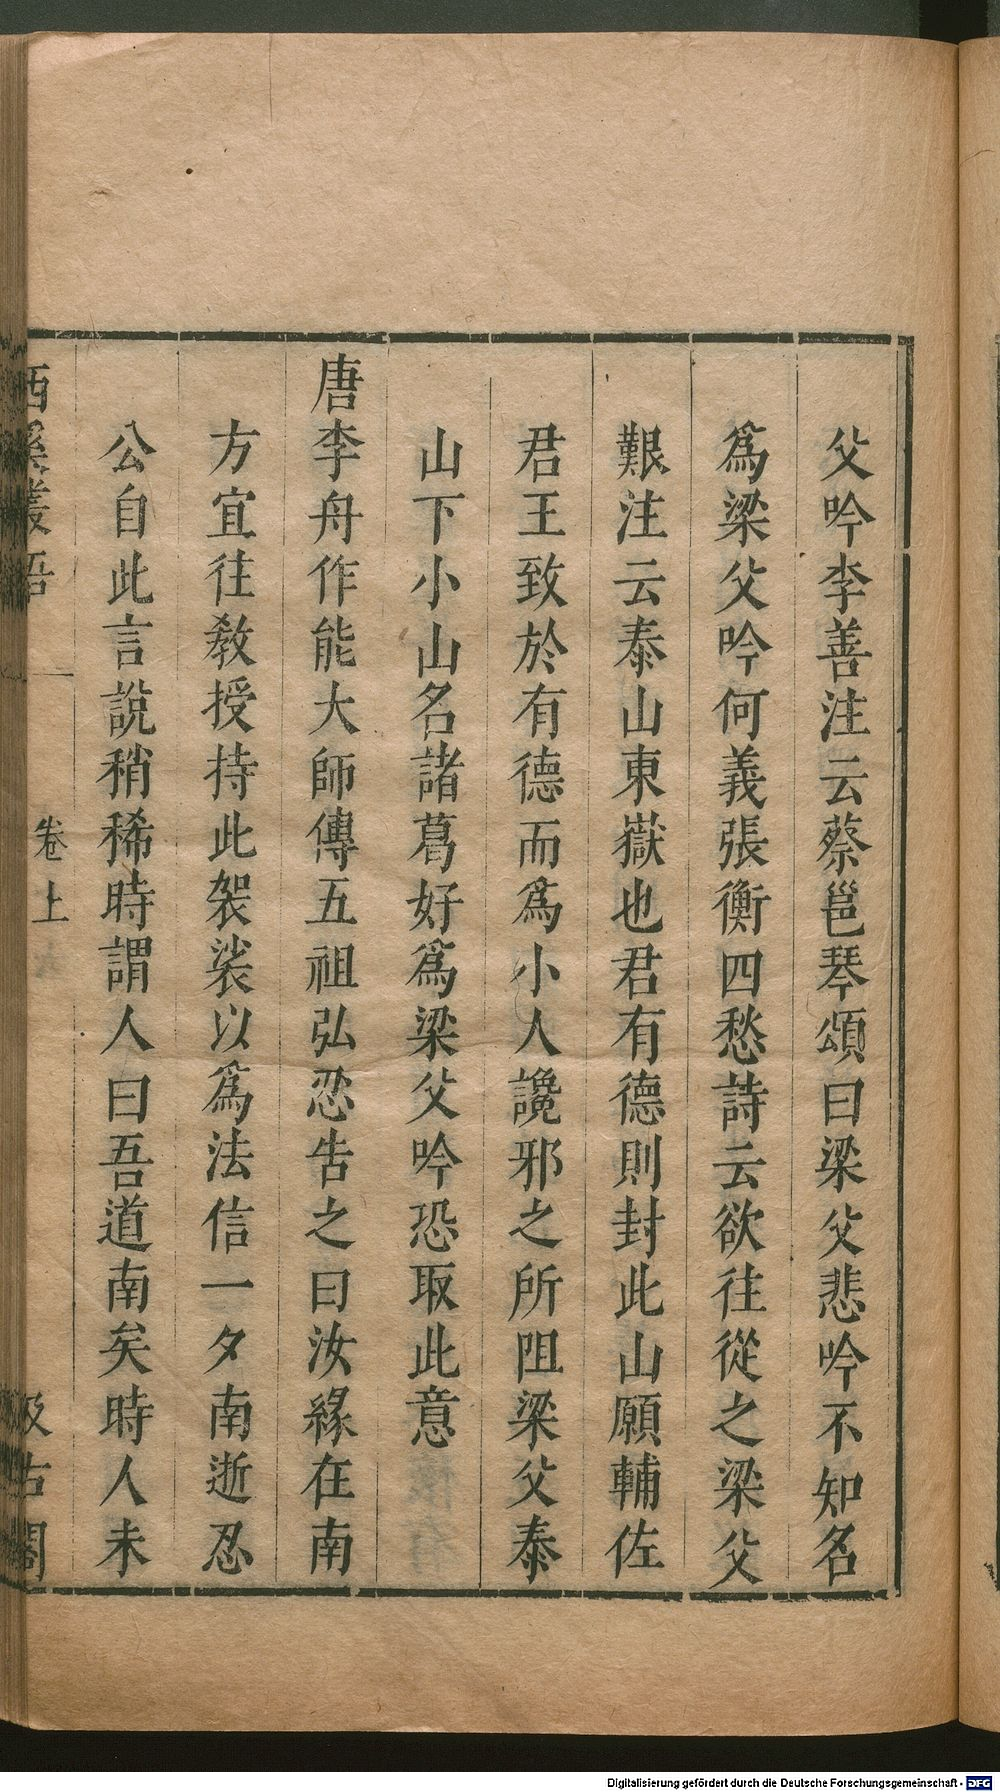 父吟李善注云蔡邕琴頌曰梁父悲吟不知名
爲梁父吟何義張衡四愁詩云欲往從之梁父
艱注云泰山東嶽也君有德則封此山願輔佐
君王致於有德而爲小人讒邪之所阻梁父泰
山下小山名諸葛好爲梁父吟恐取此意
唐李舟作能大師傳五祖弘忍告之曰汝緣在南
方宜往教授持此袈裟以爲法信一夕南逝忍
公自此言說稍稀時謂人曰吾道南矣時人未
西溪叢語 卷上 汲古閣
Digitalisierung gefördert durch die Deutsche Forschungsgemeinschaft - DFG